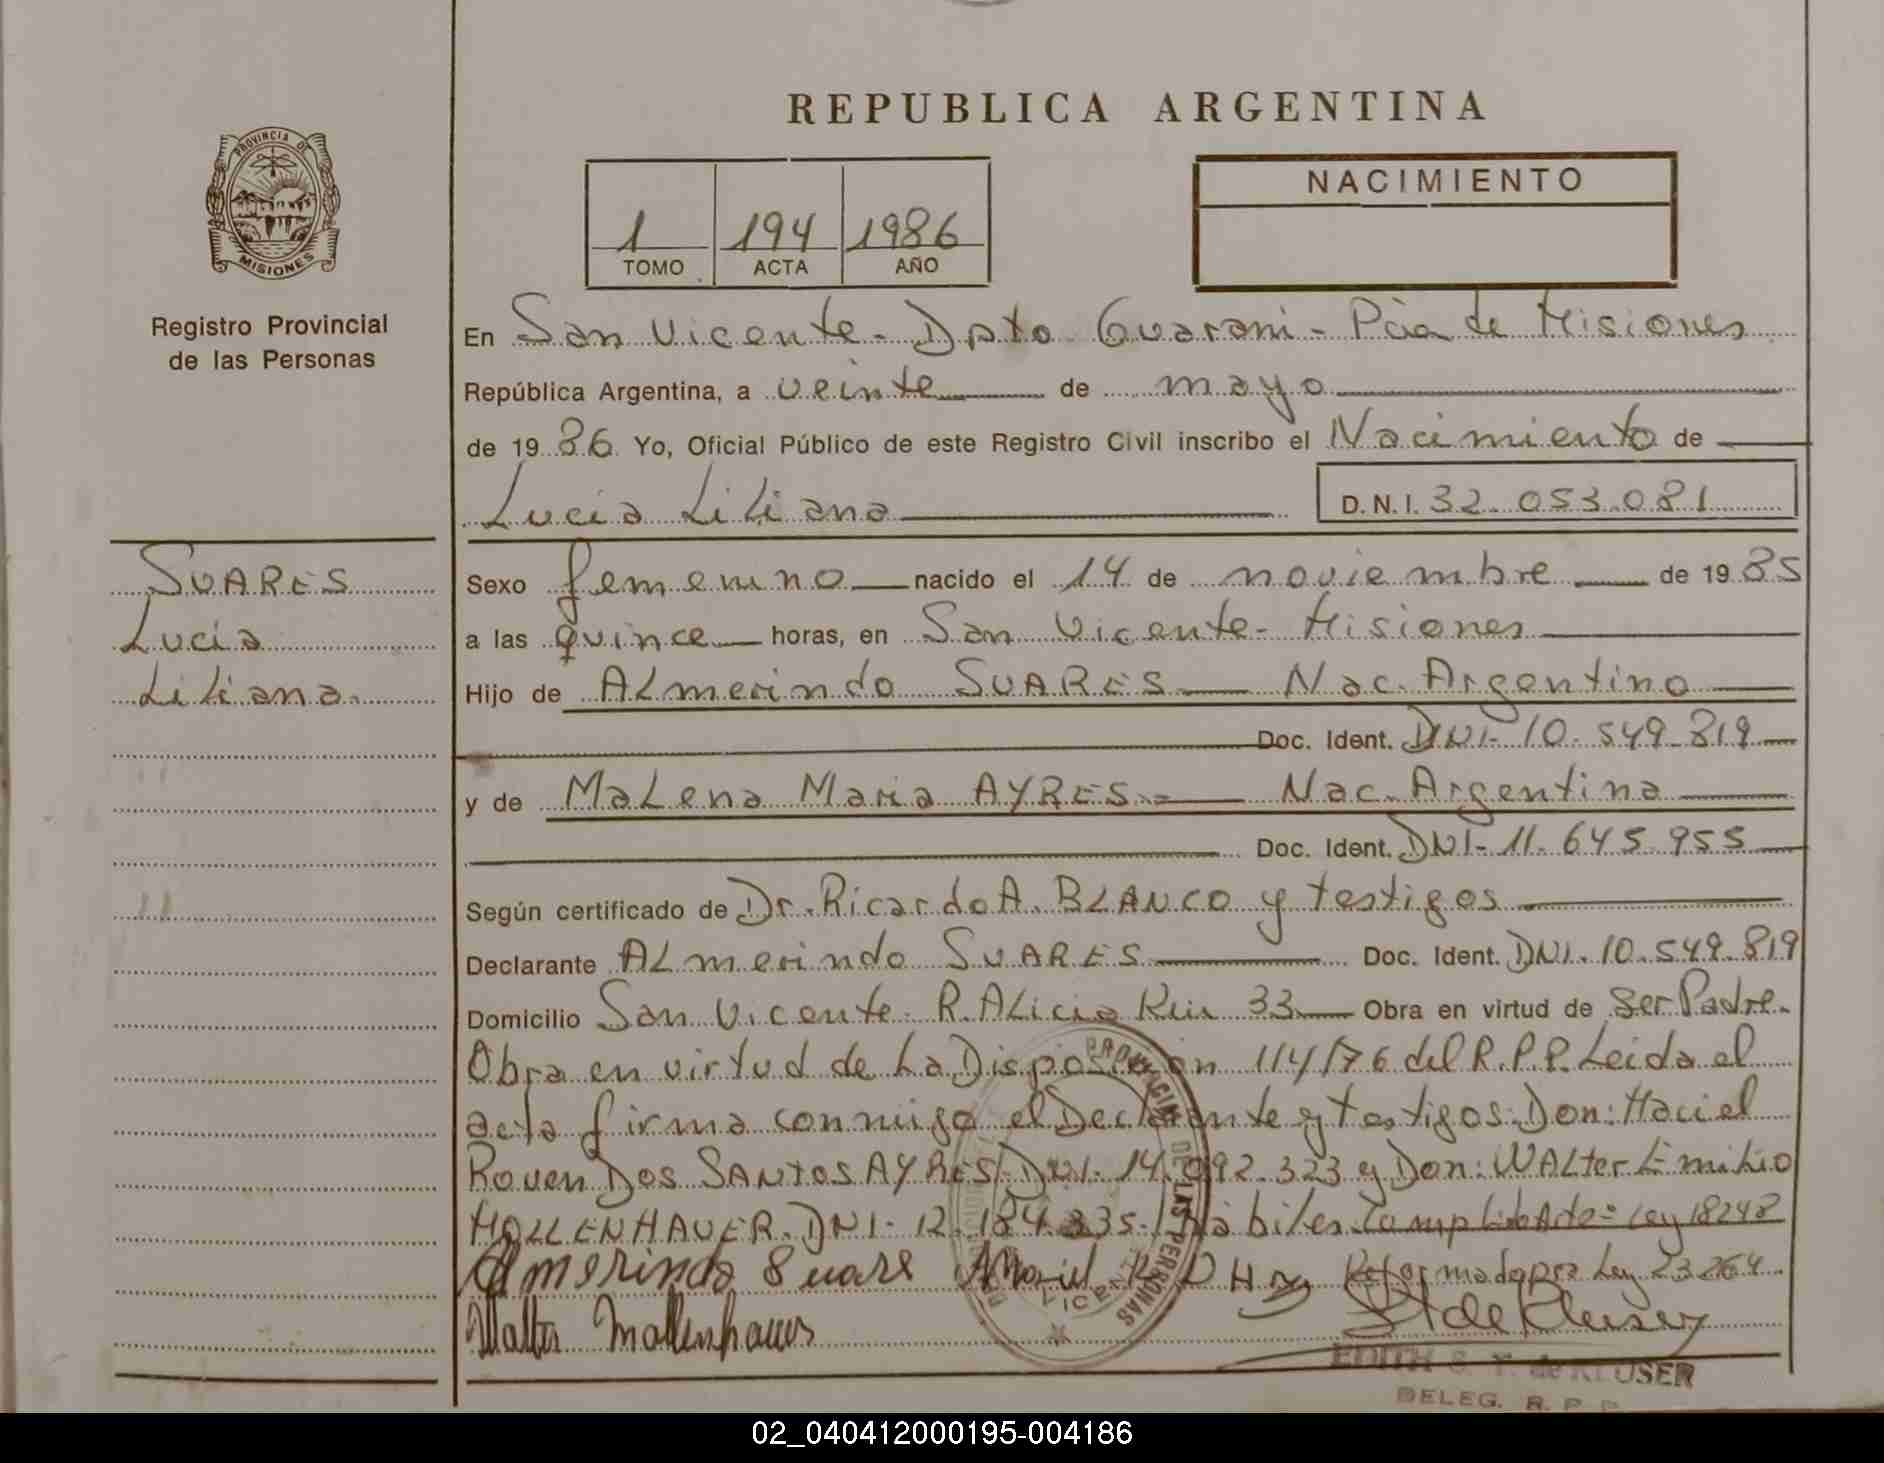 REPUBLICA ARGENTINA
PROVINCIA DE
MISIONES
Registro Provincial
de las Personas
1 194 1986
TOMO ACTA AÑO
NACIMIENTO
En San Vicente - Dpto Guarani - Pcia de Misiones
República Argentina, a veinte de mayo
de 1986 Yo, Oficial Público de este Registro Civil inscribo el Nacimiento de
Lucia Liliana D.N.I. 32.053.081
SUARES
Lucia
Liliana.
Sexo femenino nacido el 14 de noviembre de 1985
a las quince horas, en San Vicente - Misiones
Hijo de Almerindo SUARES Nac. Argentino
Doc. Ident. DNI- 10.549.819
y de Malena Maria AYRES.= Nac. Argentina
Doc. Ident. DNI- 11.645.955
Según certificado de Dr. Ricardo A. BLANCO y testigos
Declarante Almerindo SUARES Doc. Ident. DNI. 10.549.819
Domicilio San Vicente - R. Alicia Km 33 Obra en virtud de Ser Padre.
Obra en virtud de La Disposición 114/76 del R.P.P. Leida el
acta firma conmigo el Declarante y testigos: Don: Maciel
Rouen Dos SANTOS AYRES - DNI- 14.092.323 y Don: WALter Emilio
MOLLENHAUER. DNI- 12.184.335. Hábiles. Ley 18248
Almerindo Suare Reformado por Ley 23.264
Walter Mollenhauer
PROVINCIAL DE LAS PERSONAS
EDITH DE KLUSER
DELEG. R. P. P.
02_040412000195-004186